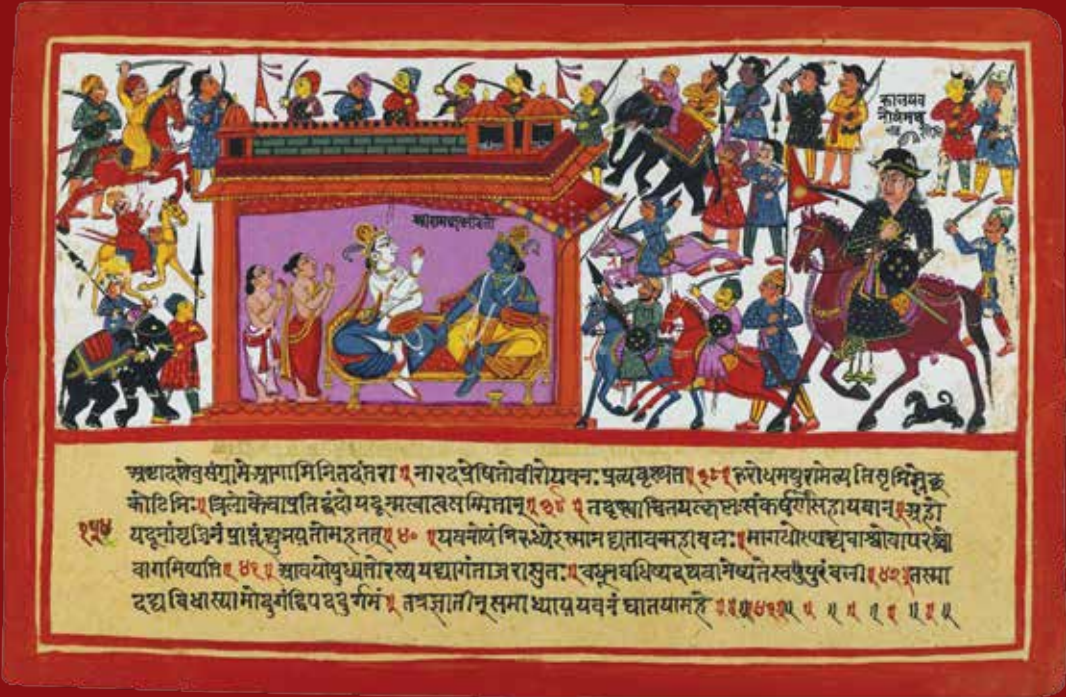 कालयव
नौलेमछ
श्रीरामकृस्नौवतौ
अष्टादसेवुसंग्रामेआगामिनितदंतरा॥नारदप्रेषितोवीरोयवनःप्रत्यदृस्यत॥३८॥रुरोधमथुरामेत्यतिसृभिर्म्लेछ
कोटिभिः॥त्रिलोकेचाप्रतिद्वंदोयदून्मत्वात्मसम्मितान्॥३९॥तंदृष्ट्वाचिंतयत्कृष्णःसंकर्षणसिहायवान्॥अहो
१५४
यदूनांवृजिनंप्राप्तंह्युभयतोमहतत्॥४०॥यवनोयंनिरुध्येऽस्मामद्यतावन्महाबलः॥मागधोप्यद्यवाश्वोवापरश्वो
वागमिष्यति॥४१॥आवयोयुध्यतोरस्ययद्यागंताजरासुतः॥बंधून्वधिष्यद्यथवानेष्यतेस्वपुरंबली॥४२॥तस्मा
दद्यविधास्यामोदुर्गंद्विपददुर्गमं॥तत्रज्ञातीन्समाध्याययवनंघातयामहे॥४३॥